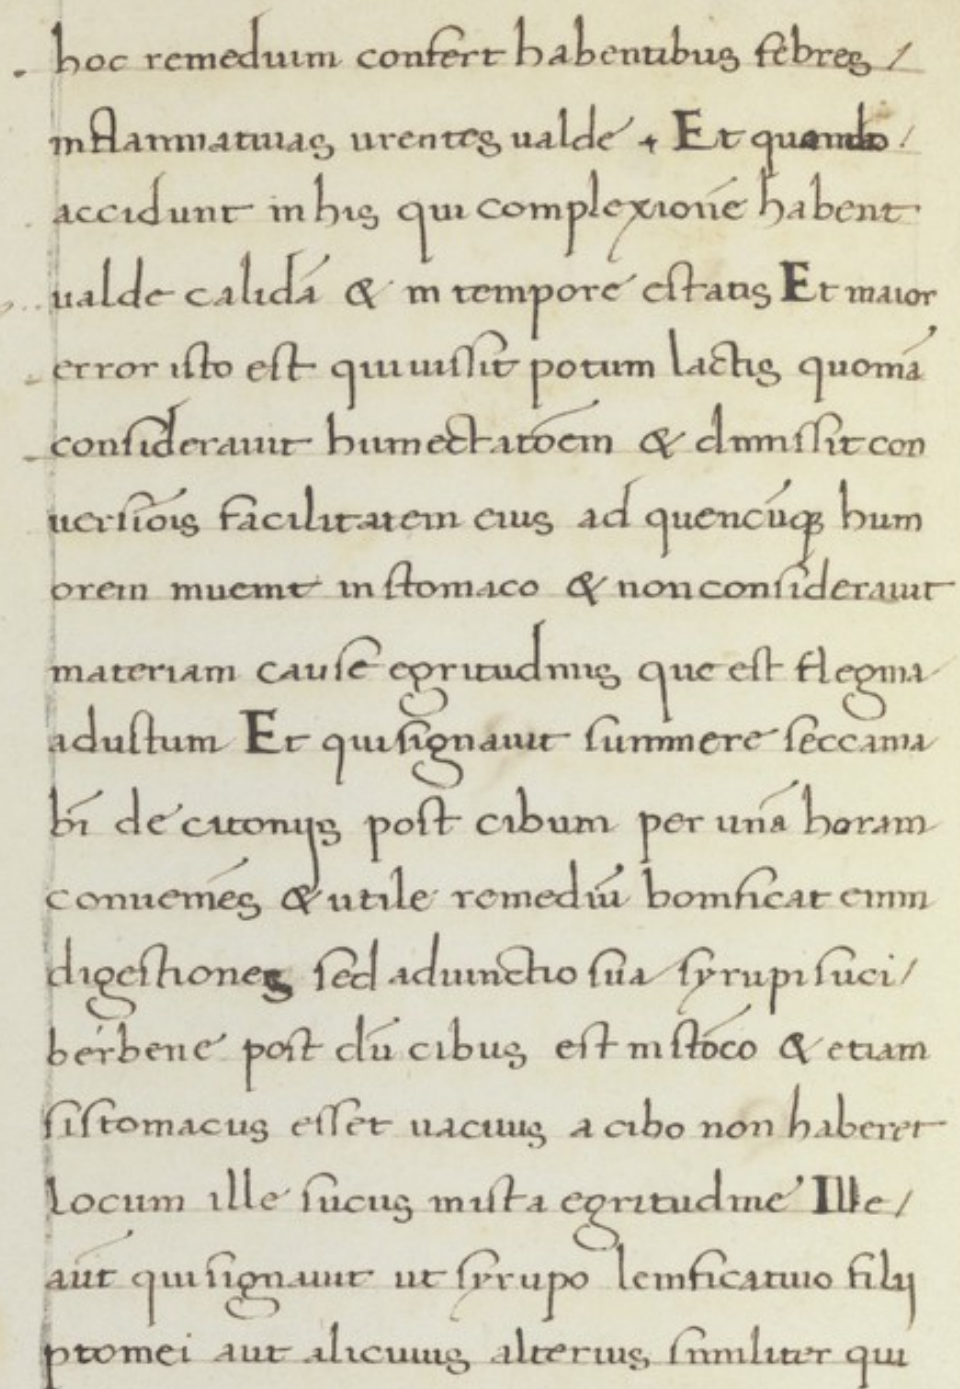 hoc remedium confert habentibus febres /
inflammativas urentes valde . Et quando /
accidunt in his qui complexionē habent
valde calidā & in tempore estatis Et maior
error isto est qui iussit potum lactis quoniā
consideravit humectatōem & dimissit con
versiōis facilitatem eius ad quencūq3 hum
orem invenit in stomaco & non consideravit
materiam cause egritudinis que est flegma
adustum Et qui signavit summere seccania
bī de citonijs post cibum per unā horam
conveniēs & utile remediū bonificat enim
digestiones sed adiunctio sua syrupi suci /
berbene post dū cibus est in stōco & etiam
si stomacus esset vacuus a cibo non haberet
locum ille sucus in ista egritudine Ille /
aūt qui signavit ut syrupo lenificativo filij
ptomei aut alicuius alterius similiter qui